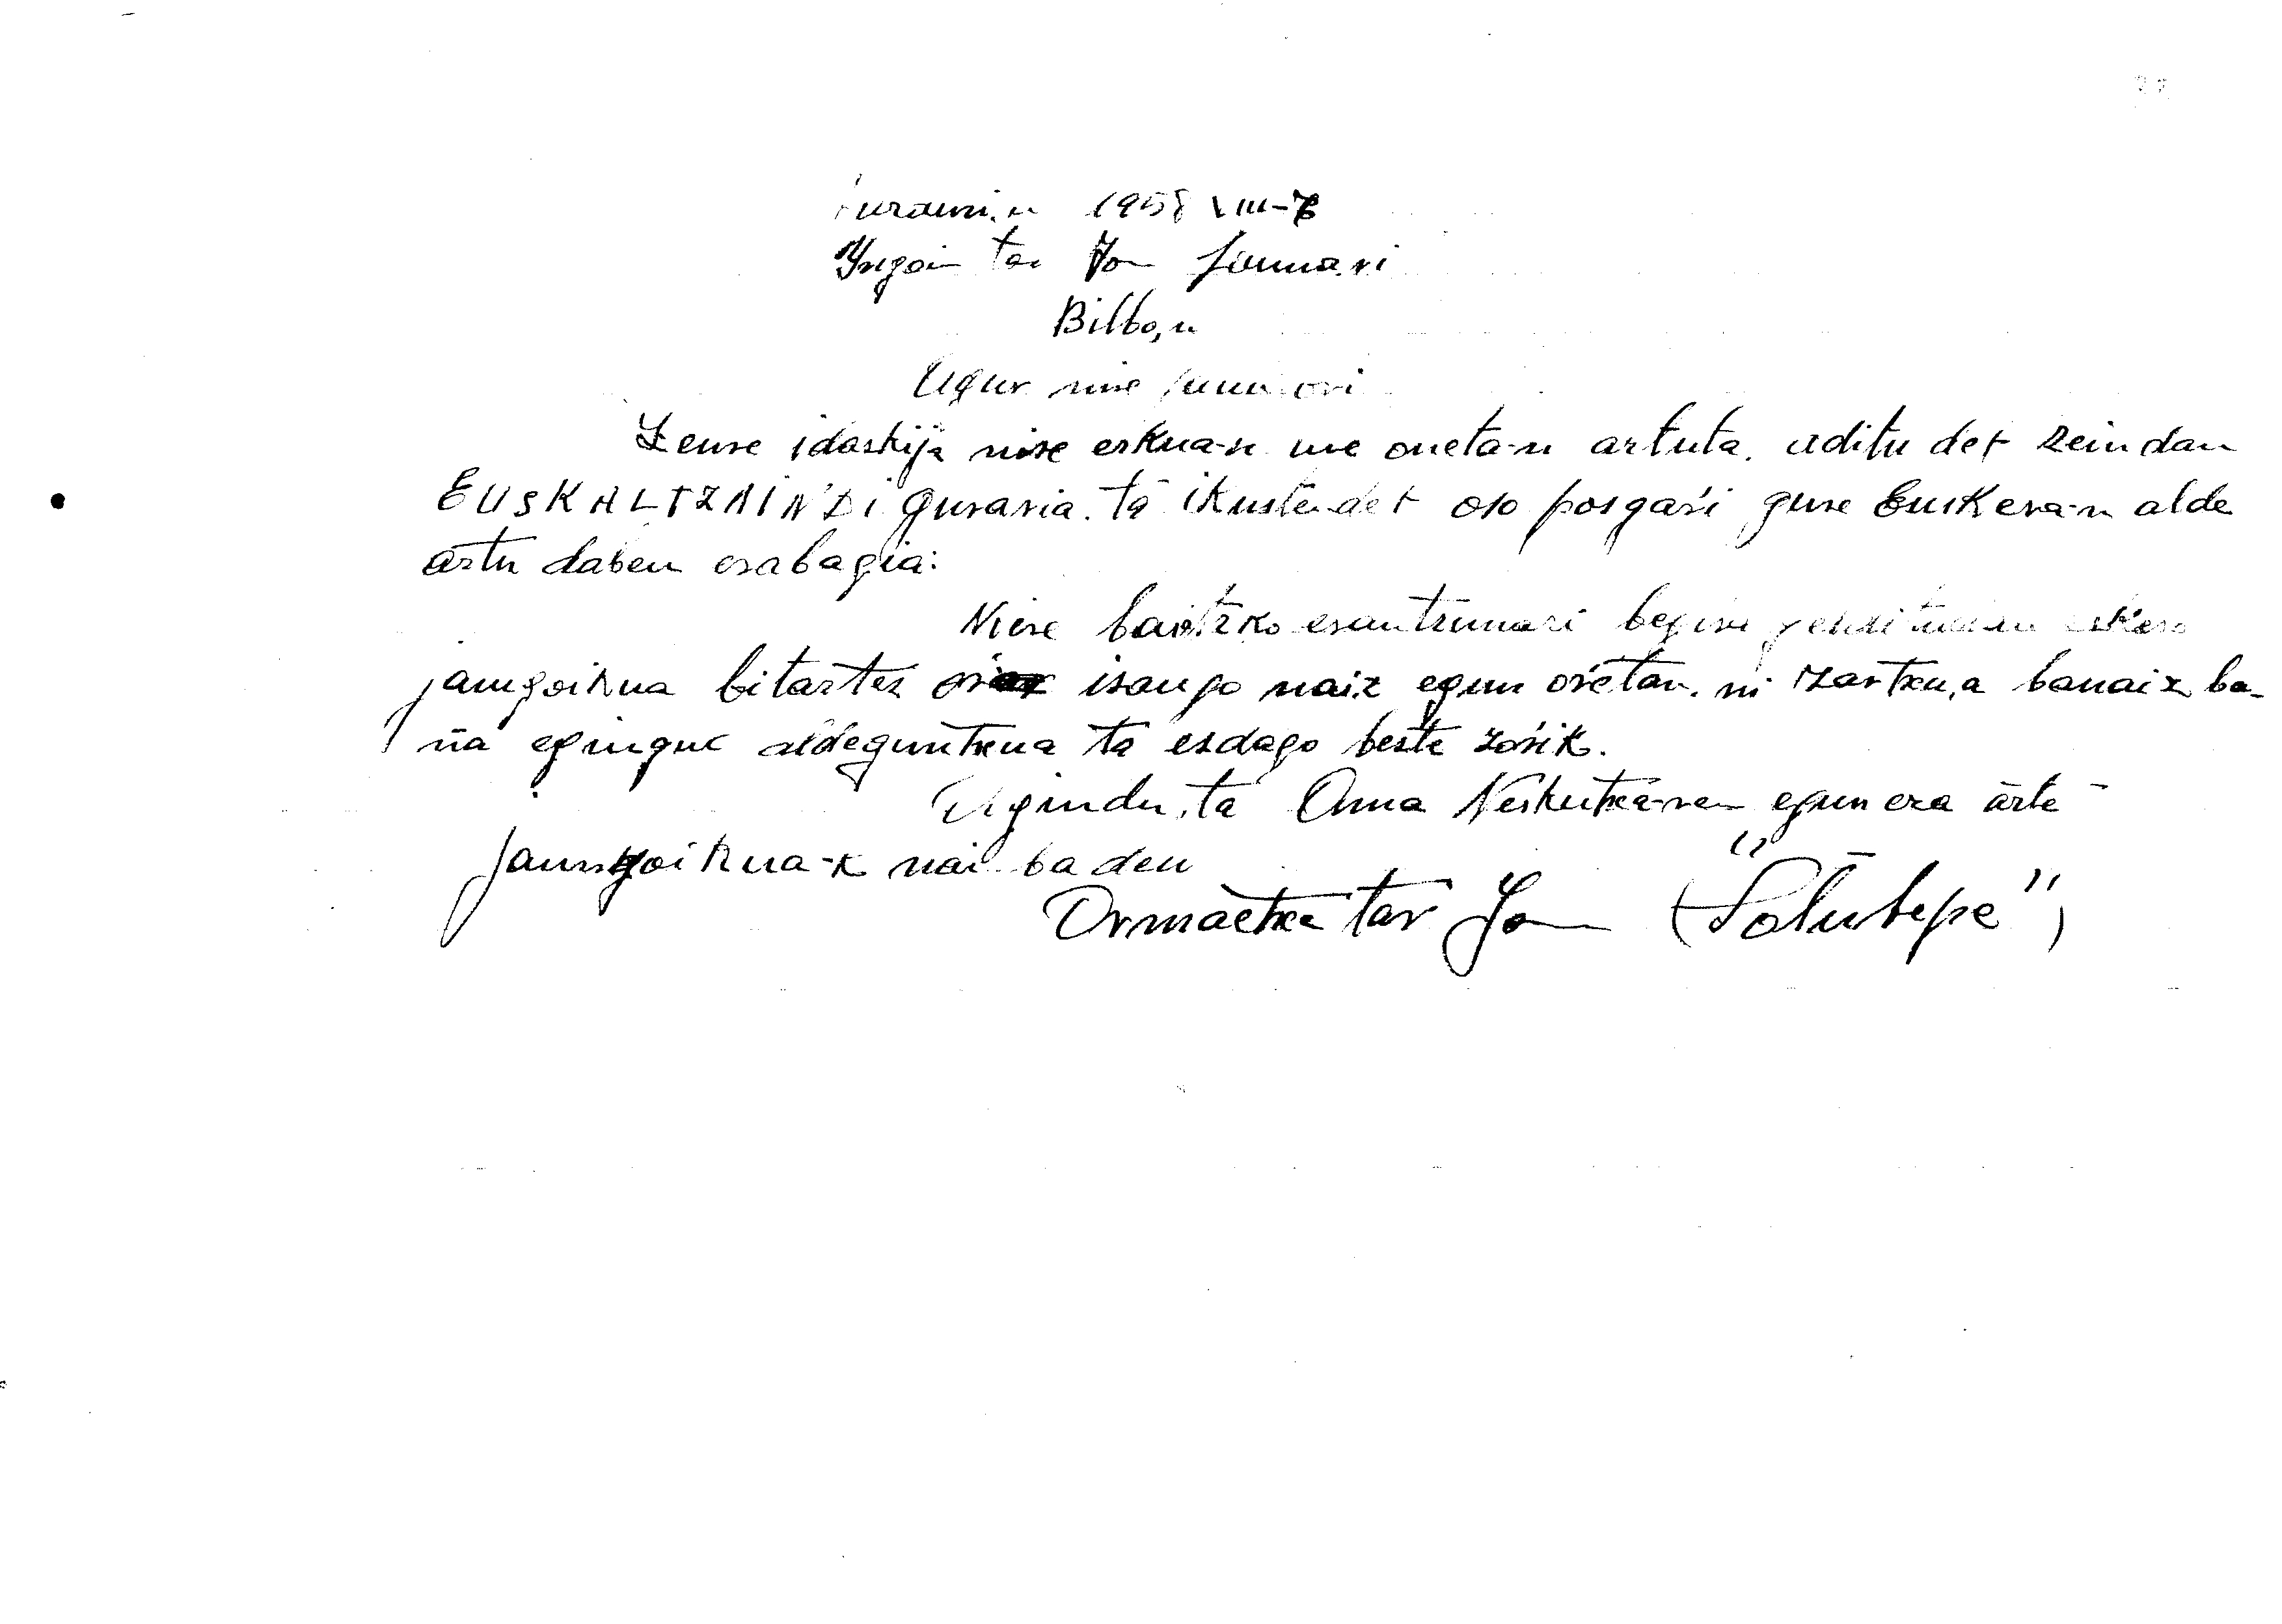 1958 VIII-7
Yrigoin tar Jon Jaunari
Bilbo,n
Agur nire jaun ori
Zeure idaskija nire eskua-n une oneta-n artuta. aditu det zein dan
EUSKALTZAINDI guraria. ta ikusten det oso posgaŕi gure Euskera-n alde
artu daben erabagia:
Niere baitzko erantzunari begira
jaungoikua bitartez isango naiz egun oŕetan. ni zartxu,a banaiz ba-
ña egingue aldeguntxua ta ezdago beste zoŕik.
Agindu,ta Ama Neskutxa-ren egun era arte
Jaungoikua-k nai baden
Ormaetxe tar Jon ("Solutepe")